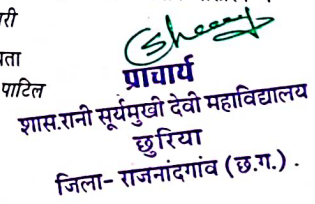 री
यता
पाटिल
प्राचार्य
शास.रानी सूर्यमुखी देवी महाविद्यालय
छुरिया
जिला- राजनांदगांव (छ.ग.) .